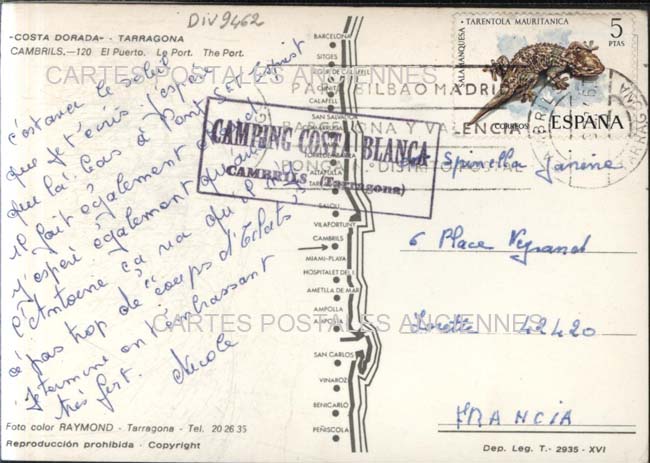 Div 9462
«COSTA DORADA» - TARRAGONA
CAMBRILS.—120 El Puerto. Le Port. The Port.
c'estana le soleil
que je t'écris j'espère
que la bas à Pont St Esprit
il fait également
J'espère également que
l'Antoine ça va que il n'y
a pas trop de "coups d'éclats"
Je termine en t'embrassant
très fort. Nicole
Foto color RAYMOND - Tarragona - Tel. 20 26 35
Reproducción prohibida - Copyright
CAMPING COSTA BLANCA
CAMBRILS (Tarragona)
BARCELONA
SITGES
SEGUR DE CALAFELL
CALAFELL
SAN SALVADOR
ALTAFULLA
SALOU
VILAFORTUNY
CAMBRILS
MIAMI-PLAYA
HOSPITALET DEL I.
AMETLLA DE MAR
AMPOLLA
AMPOSTA
SAN CARLOS
VINAROZ
BENICARLO
PEÑISCOLA
TARENTOLA MAURITANICA
SALAMANQUESA
5
PTAS
CORREOS
ESPAÑA
BILBAO MADRID
BARCELONA Y VALENCIA
DISTRITO POSTAL
Spinella Janine
6 Place Veyrand
Lorette 42420
FRANCIA
Dep. Leg. T.- 2935 - XVI
CARTES POSTALES ANCIENNES
CARTES POSTALES ANCIENNES